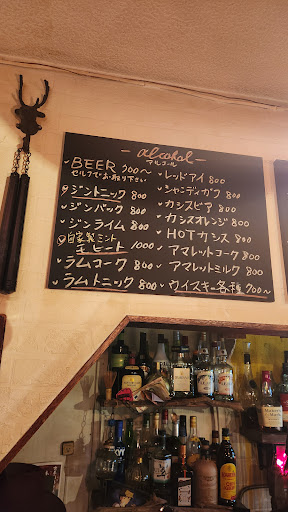 - alcohol -
アルコール
BEER 700~
セルフでお取り下さい
ジントニック 800
ジンバック 800
ジンライム 800
自家製ミント
モヒート 1000
ラムコーク 800
ラムトニック 800
レッドアイ 800
シャンディガフ 800
カシスビア 800
カシスオレンジ 800
HOTカシス 800
アマレットコーク 800
アマレットミルク 800
ウイスキー各種 700~